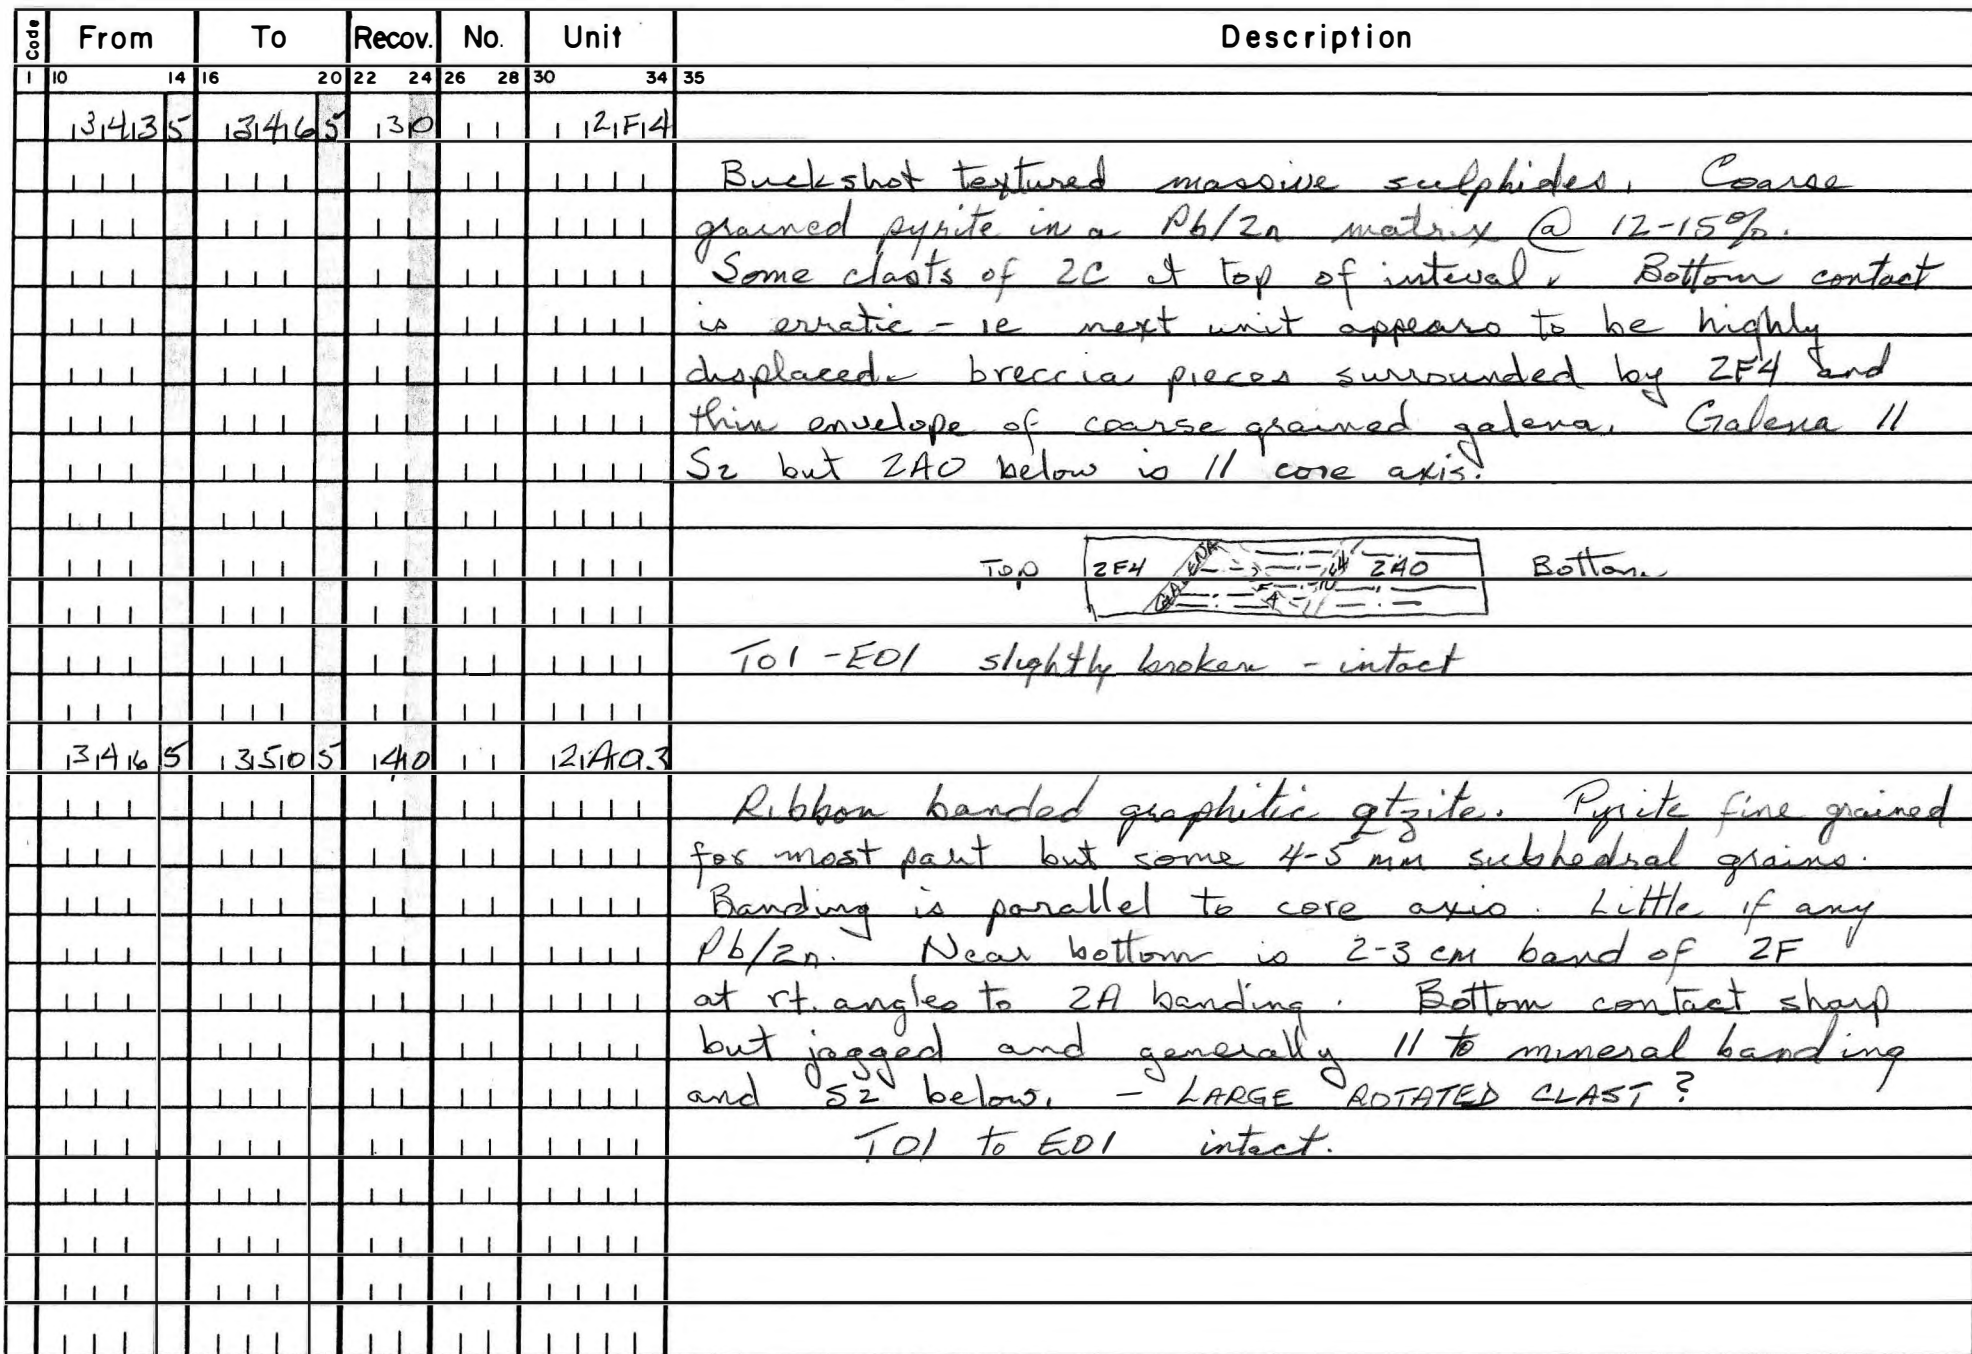 Code From To Recov. No. Unit Description
1 10 14 16 20 22 24 26 28 30 34 35
343 5 346 5 30 2F4
Buckshot textured massive sulphides. Coarse
grained pyrite in a Pb/Zn matrix @ 12-15%.
Some clasts of 2C at top of inteval. Bottom contact
is erratic - ie next unit appears to be highly
displaced breccia pieces surrounded by 2F4 and
thin envelope of coarse grained galena. Galena //
S2 but 2A0 below is // core axis.
Top 2F4 GALENA 2A0 Bottom
T01 - E01 slightly broken - intact
346 5 350 5 40 2A03
Ribbon banded graphitic qtzite. Pyrite fine grained
for most part but some 4-5 mm subhedral grains.
Banding is parallel to core axis. Little if any
Pb/Zn. Near bottom is 2-3 cm band of 2F
at rt. angles to 2A banding. Bottom contact sharp
but jagged and generally // to mineral banding
and S2 below. - LARGE ROTATED CLAST?
T01 to E01 intact.